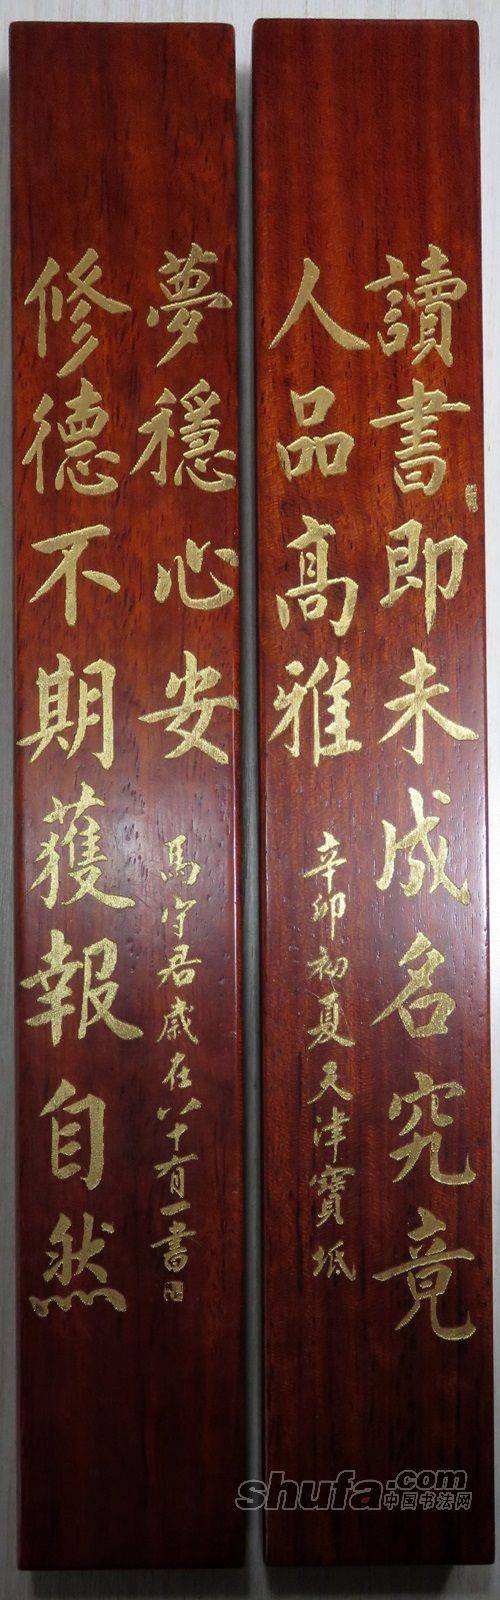 讀書即未成名究竟
人品高雅
辛卯初夏天津寶坻
修德不期獲報自然
夢穩心安
馬守君歲在八十有一書
shufa.com
中国书法网